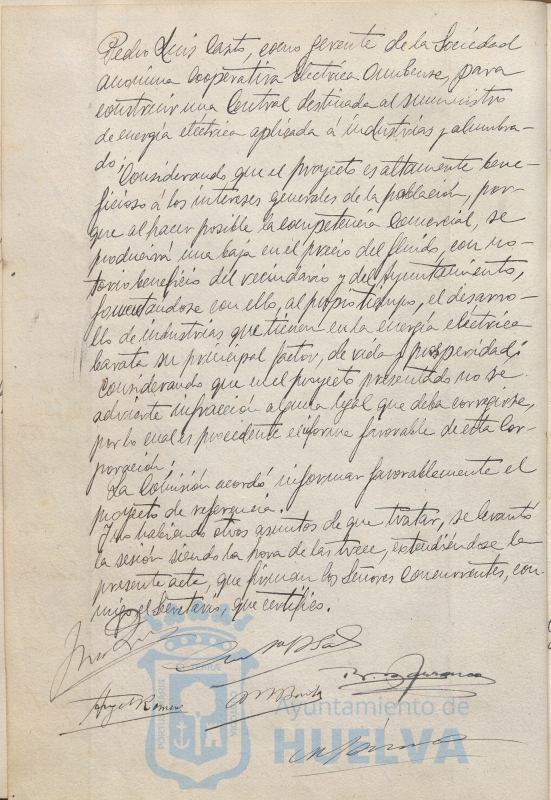 Pedro Luis Casto, como gerente de la Sociedad
anónima Cooperativa Eléctrica Onubense, para
construir una Central destinada al suministro
de energía eléctrica aplicada á industrias y alumbra-
do;
Considerando que el proyecto es altamente bene-
ficioso á los intereses generales de la población, por-
que al hacer posible la competencia Comercial, se
producirá una baja en el precio del fluido, con no-
torio beneficio del vecindario y del Ayuntamiento,
fomentándose con ello, al propio tiempo, el desarro-
llo de industrias que tienen en la energía eléctrica
barata su principal factor, de vida y prosperidad;
Considerando que en el proyecto presentado no se
advierte infracción alguna legal que deba corregirse,
por lo cual es procedente el informe favorable de esta Cor-
poración;
La Comisión acordó informar favorablemente el
proyecto de referencia.
Y no habiendo otros asuntos de que tratar, se levantó
la sesión siendo la hora de las trece, extendiéndose la
presente acta, que firman los Señores Concurrentes, con-
migo el Secretario, que certifico.
Ayuntamiento de
HUELVA